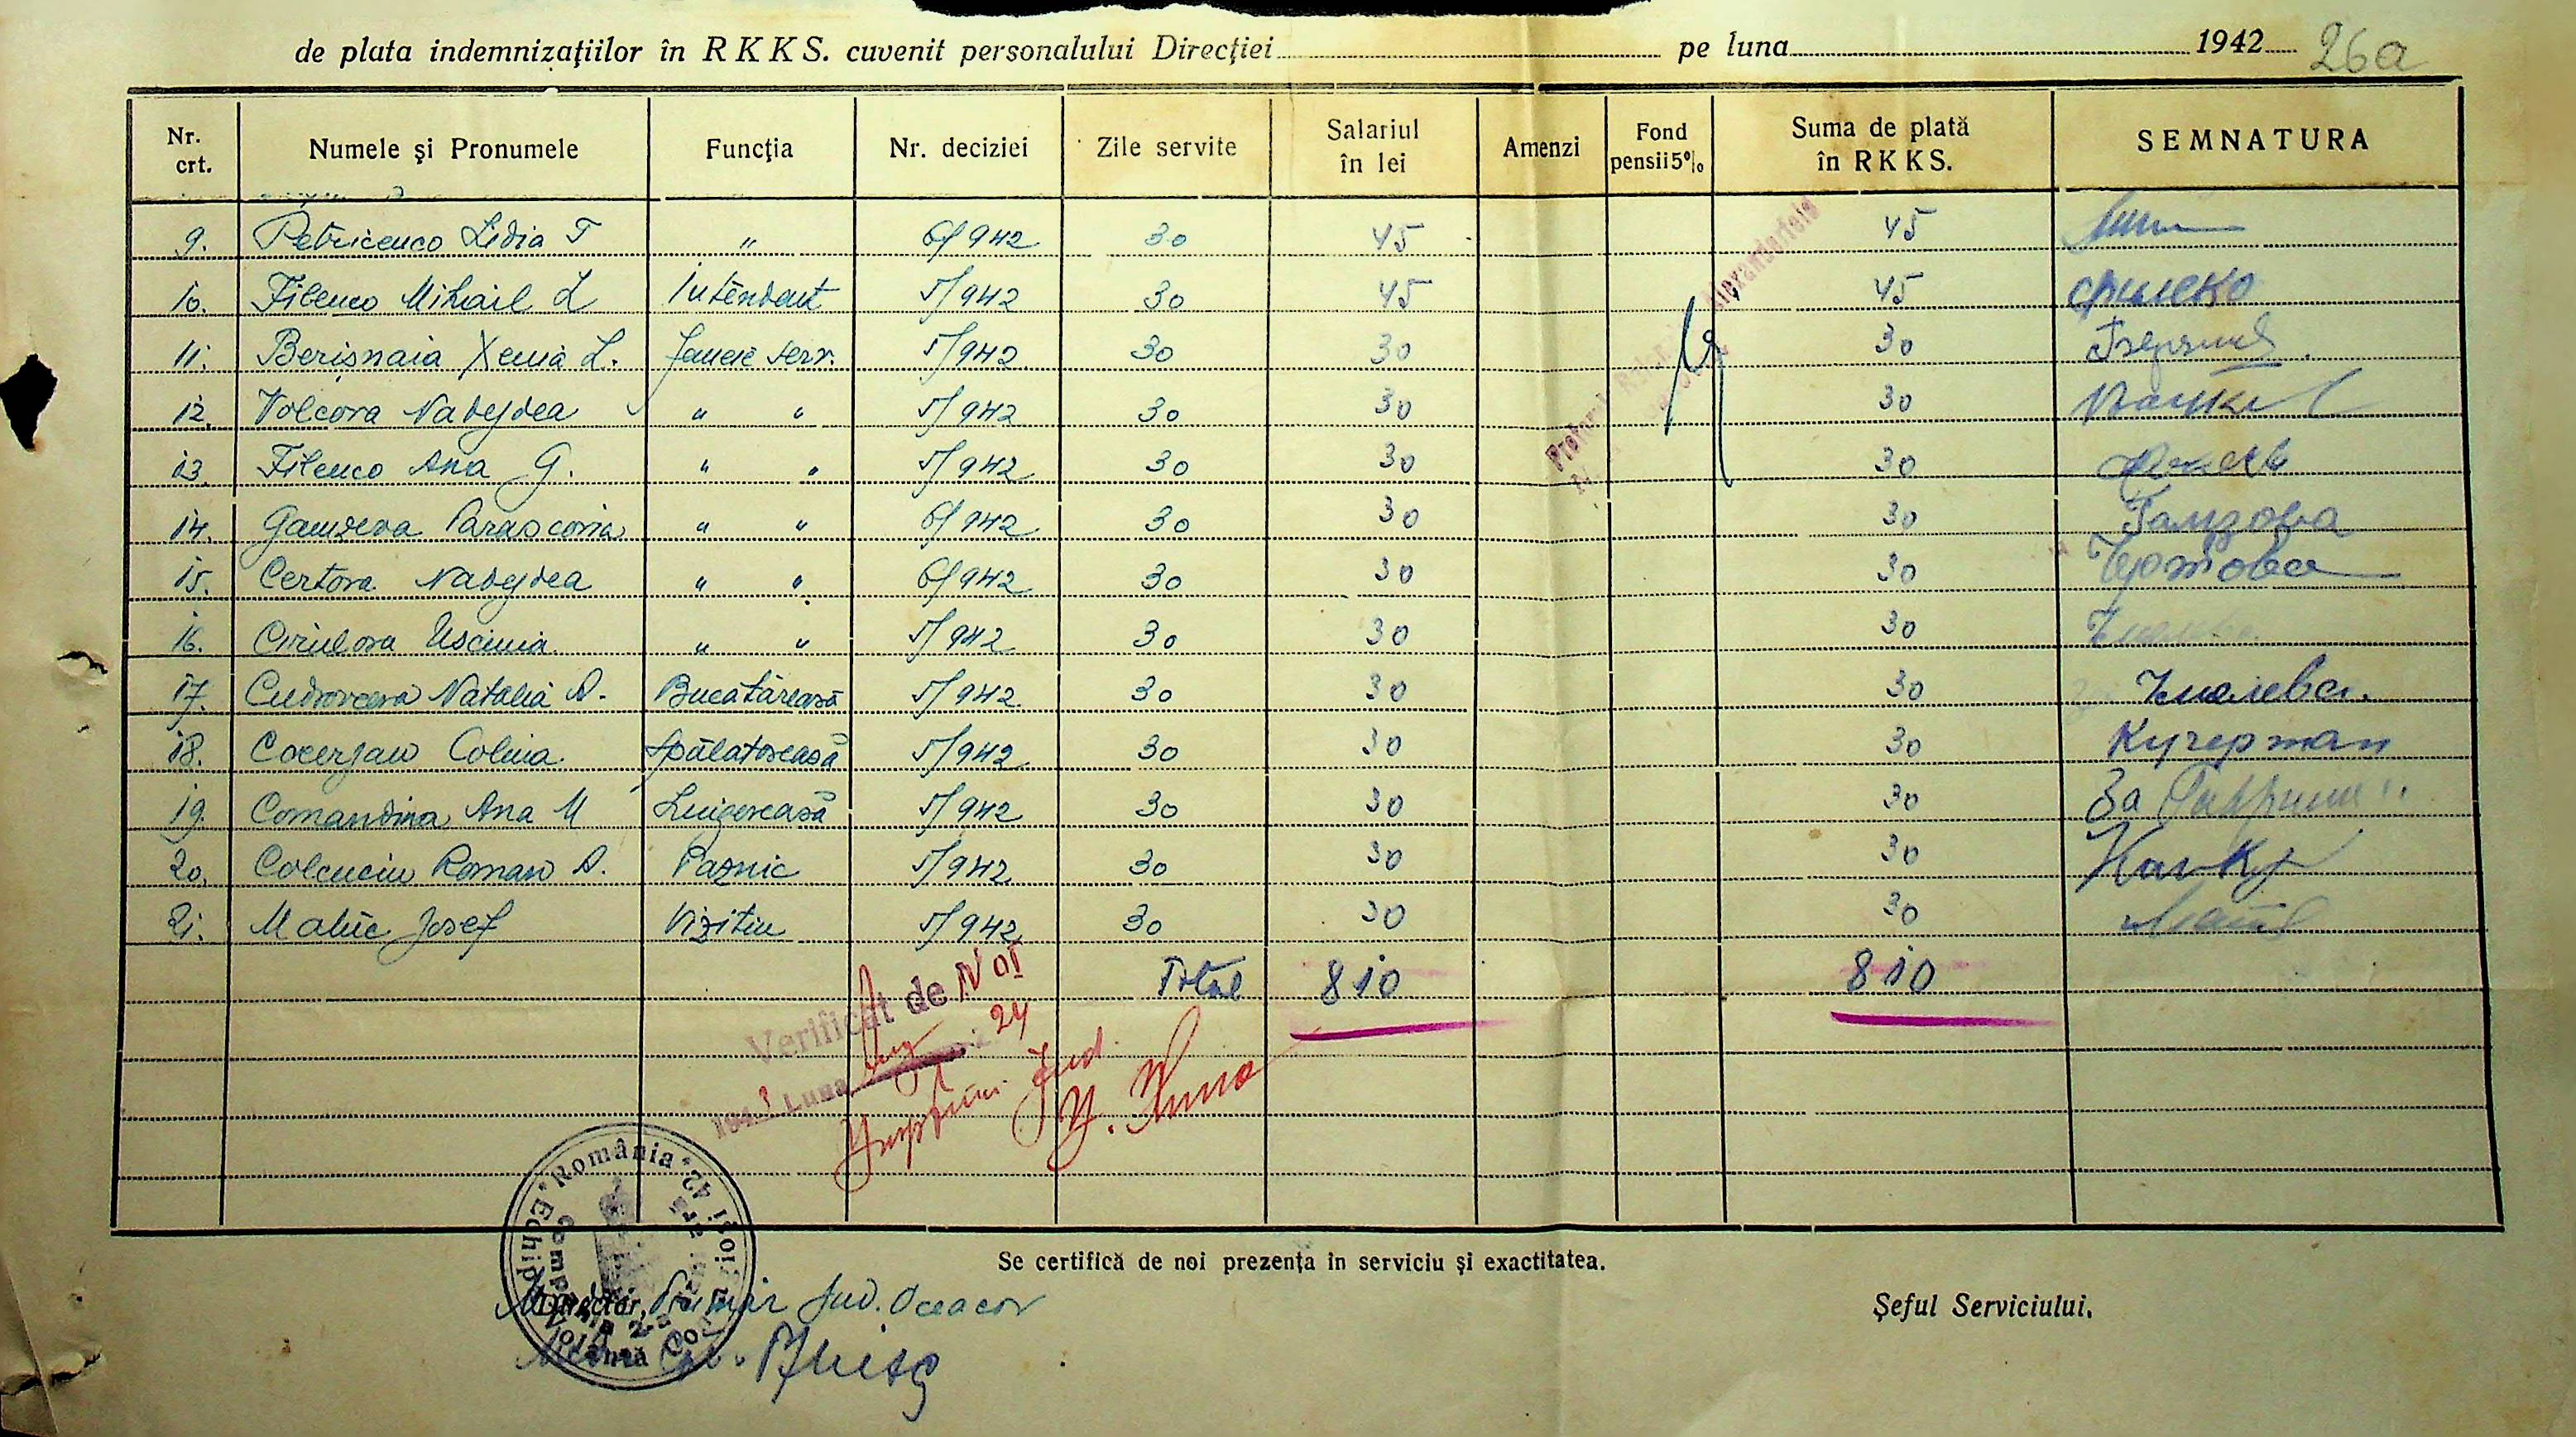 de plata indemnizaţiilor în R K K S. cuvenit personalului Direcţiei pe luna 1942 26a
Nr. crt. Numele şi Pronumele Funcţia Nr. deciziei Zile servite Salariul în lei Amenzi Fond pensii 5% Suma de plată în R K K S. SEMNATURA
9. Petricenco Lidia T " 6/942 30 45 45
10. Filenco Mihail L Intendent 5/942 30 45 45 Филеко
11. Berisnaia Xenia L. femeie serv. 5/942 30 30 30
12. Volcova Nadejdea " " 5/942 30 30 30
13. Filenco Ana G. " " 5/942 30 30 30
14. Gamzeva Parascovia " " 6/942 30 30 30 Гамзова
15. Certova Nadejdea " " 6/942 30 30 30 Чертова
16. " " 5/942 30 30 30
17. Natalia A. Bucătăreasă 5/942 30 30 30
18. Cocerjan Colina Spălatoreasă 5/942 30 30 30 Кучерман
19. Comandina Ana M Lingereasă 5/942 30 30 30 За
20. Colcuciu Roman A. Paznic 5/942 30 30 30
21. Malic Josef Vizitiu 5/942 30 30 30
Total 810 810
Verificat de NOI
1943 Luna Aug 24
Jud.
România
Se certifică de noi prezenţa în serviciu şi exactitatea.
Director, Jud. Oceacov
Şeful Serviciului,